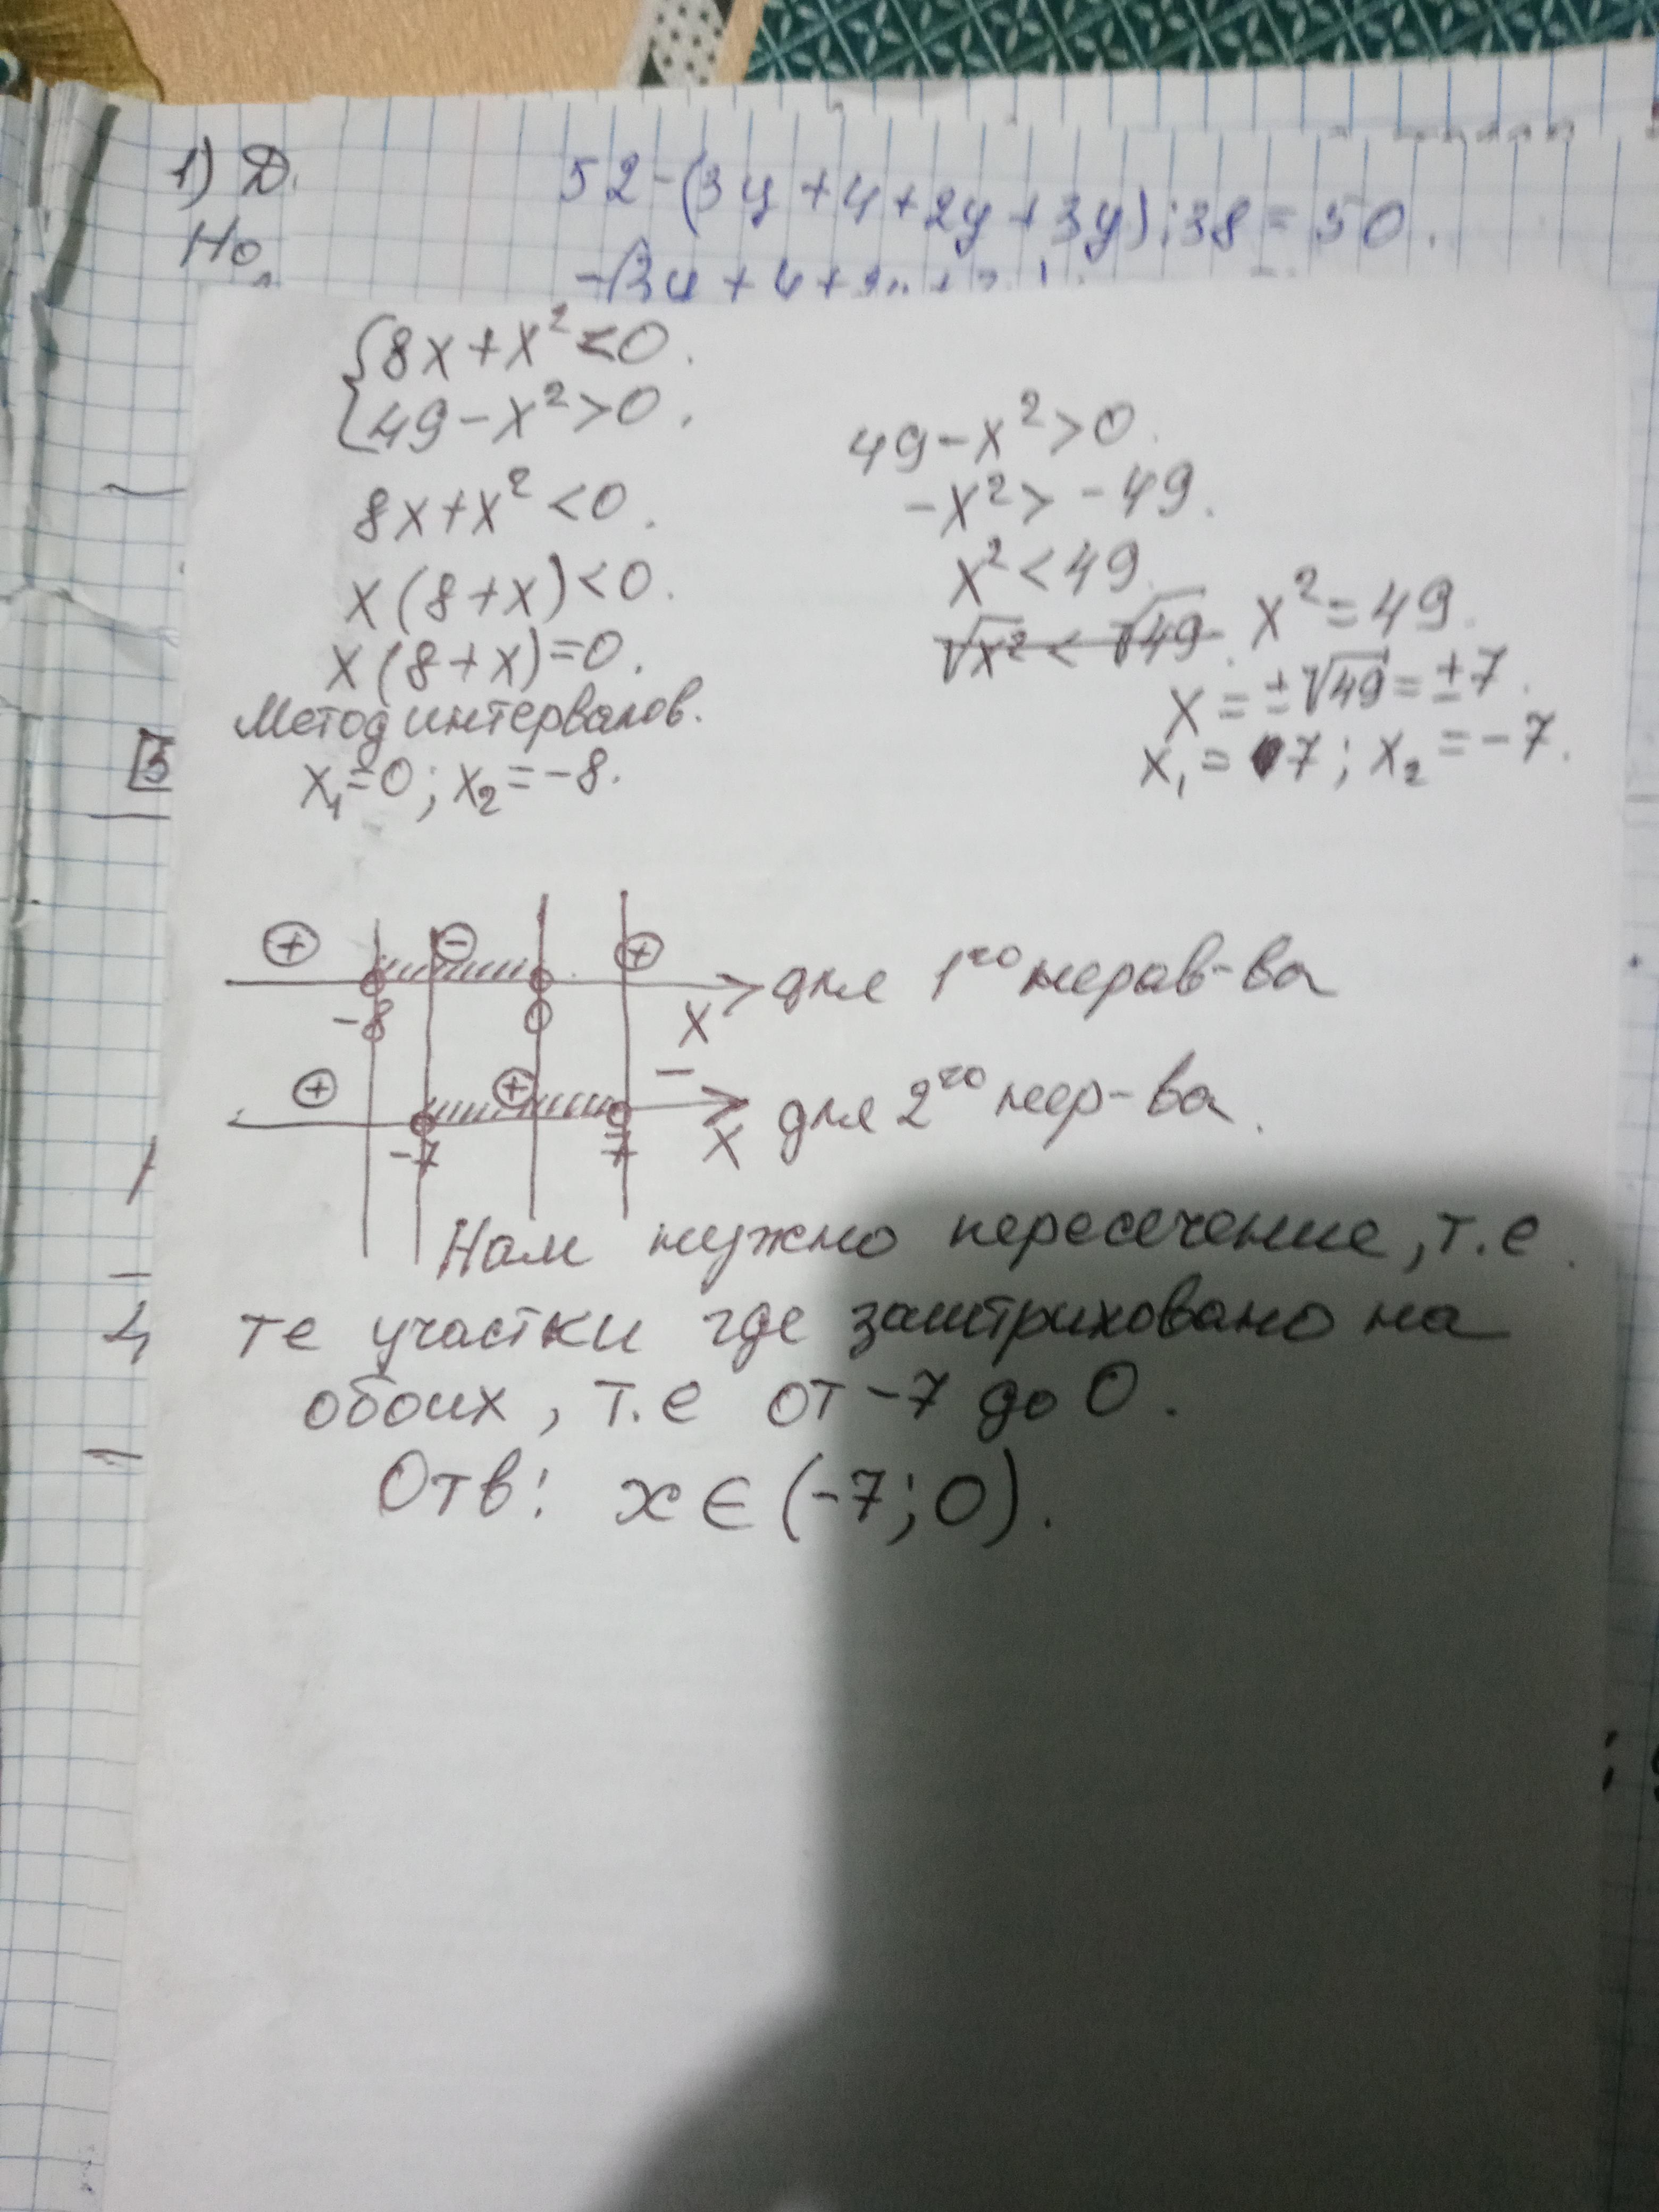 1) Д.
52-(3y+4+2y+3y):38=50.
Но
{8x+x²<0.
49-x²>0.
8x+x²<0.
x(8+x)<0.
x(8+x)=0.
Метод интервалов.
x₁=0; x₂=-8.
49-x²>0.
-x²>-49.
x²<49.
√x² < √49.
x²=49.
x=±√49=±7.
x₁=7; x₂=-7.
5
+ - +
для 1го нерав-ва
-8 0 x
+ + -
для 2го нер-ва.
-7 7 x
Нам нужно пересечение, т.е.
те участки где заштриховано на
обоих, т.е от -7 до 0.
Отв: x∈(-7;0).